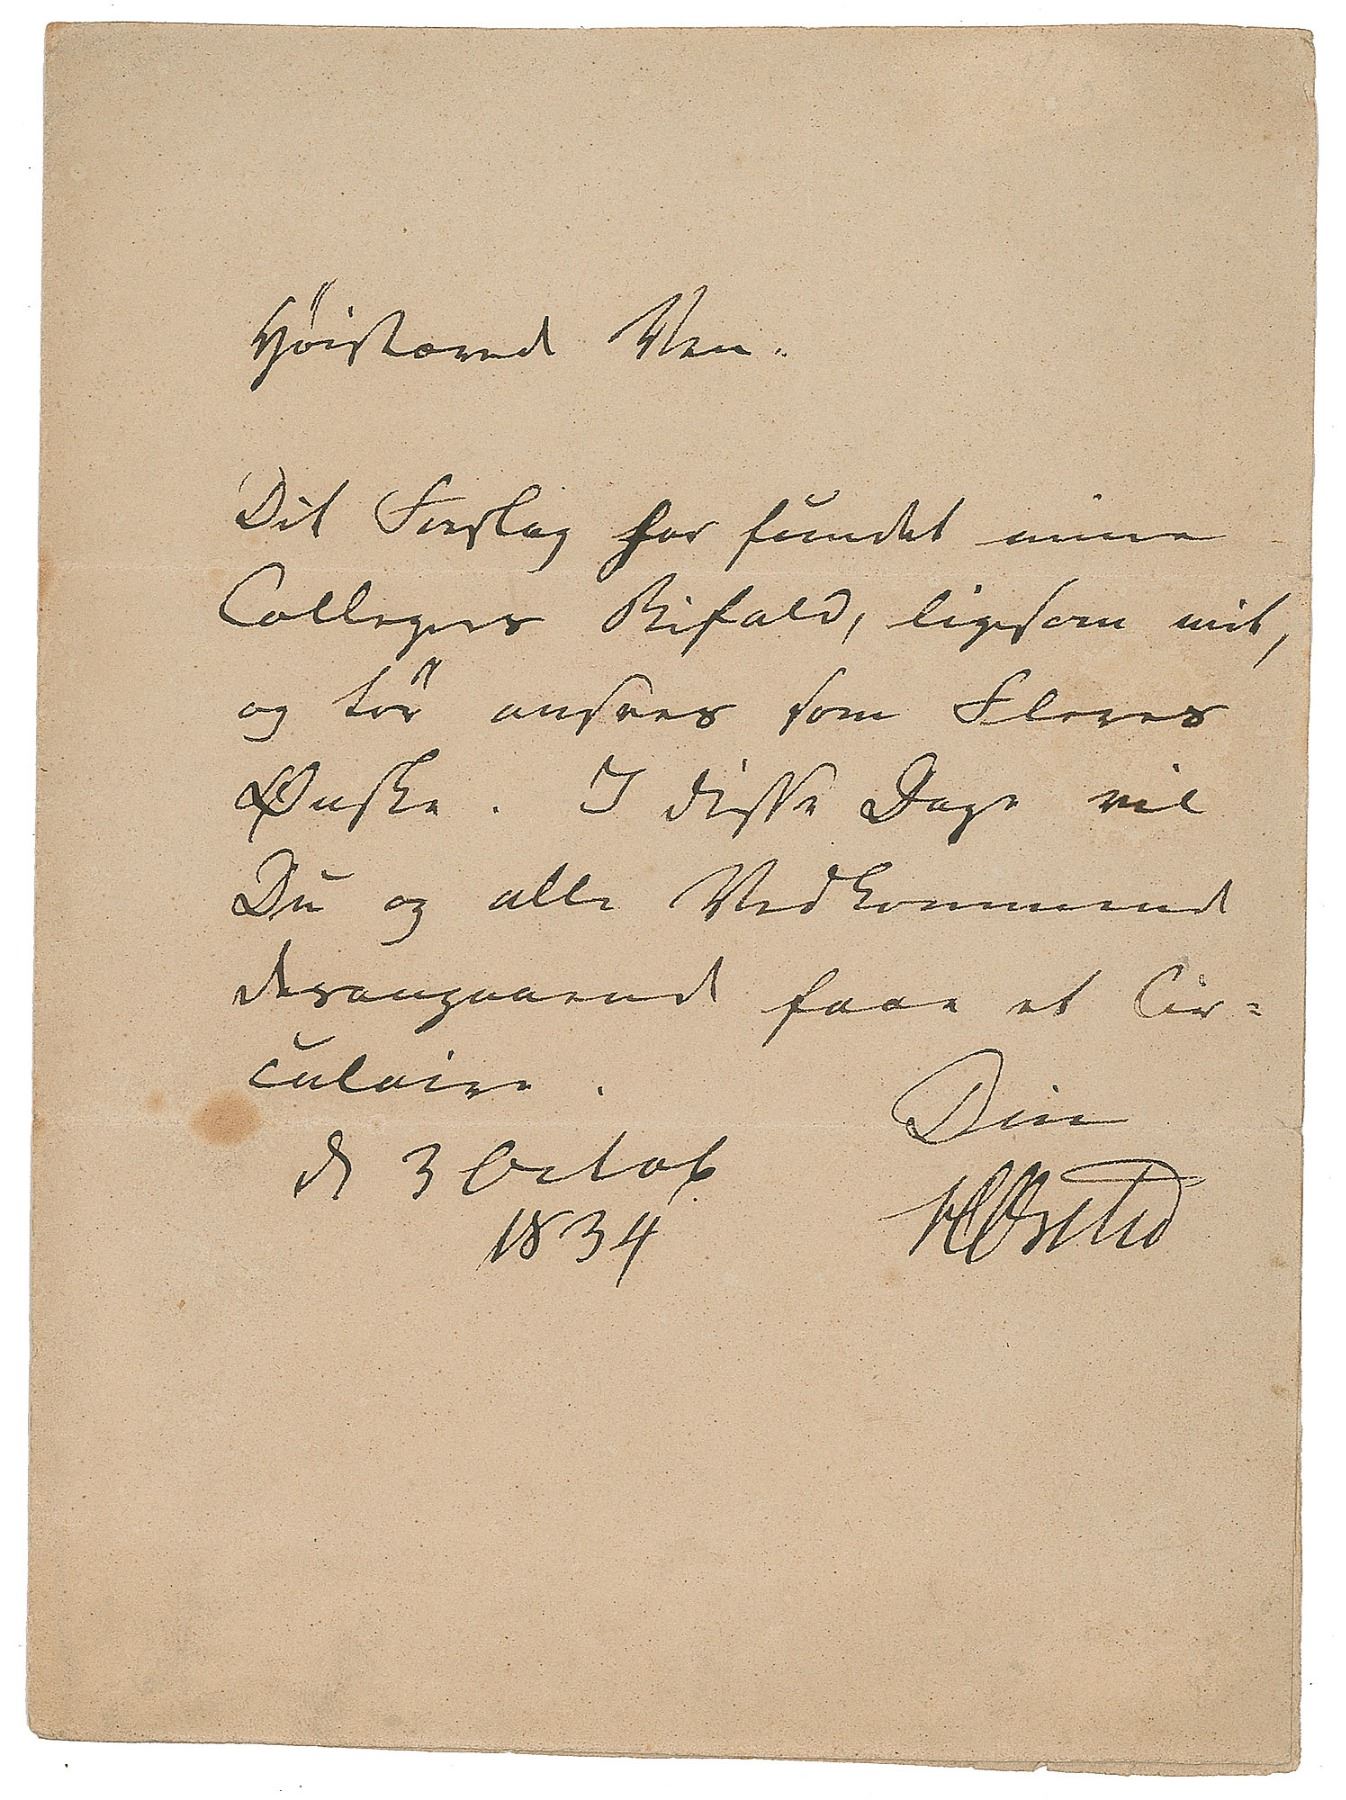 Høistærede Ven.
Dit Forslag har fundet mine
Collegers Bifald, ligesom mit,
og tør ansees som Fleres
Ønske. I disse Dage vil
Du og alle Vedkommende
derangaaende faae et Cir=
culaire.
Din
d 3 Octob
HCØrsted
1834